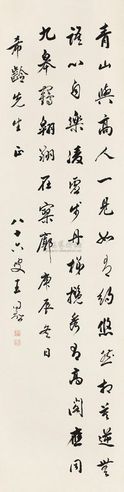 青山與高人一見如有約悠然相共適世
諠心自樂凌雲步丹梯攬秀有高閣應同
九皋鶴翱翔在寥廓 庚辰冬日
希齡先生正
八十六叟王同愈